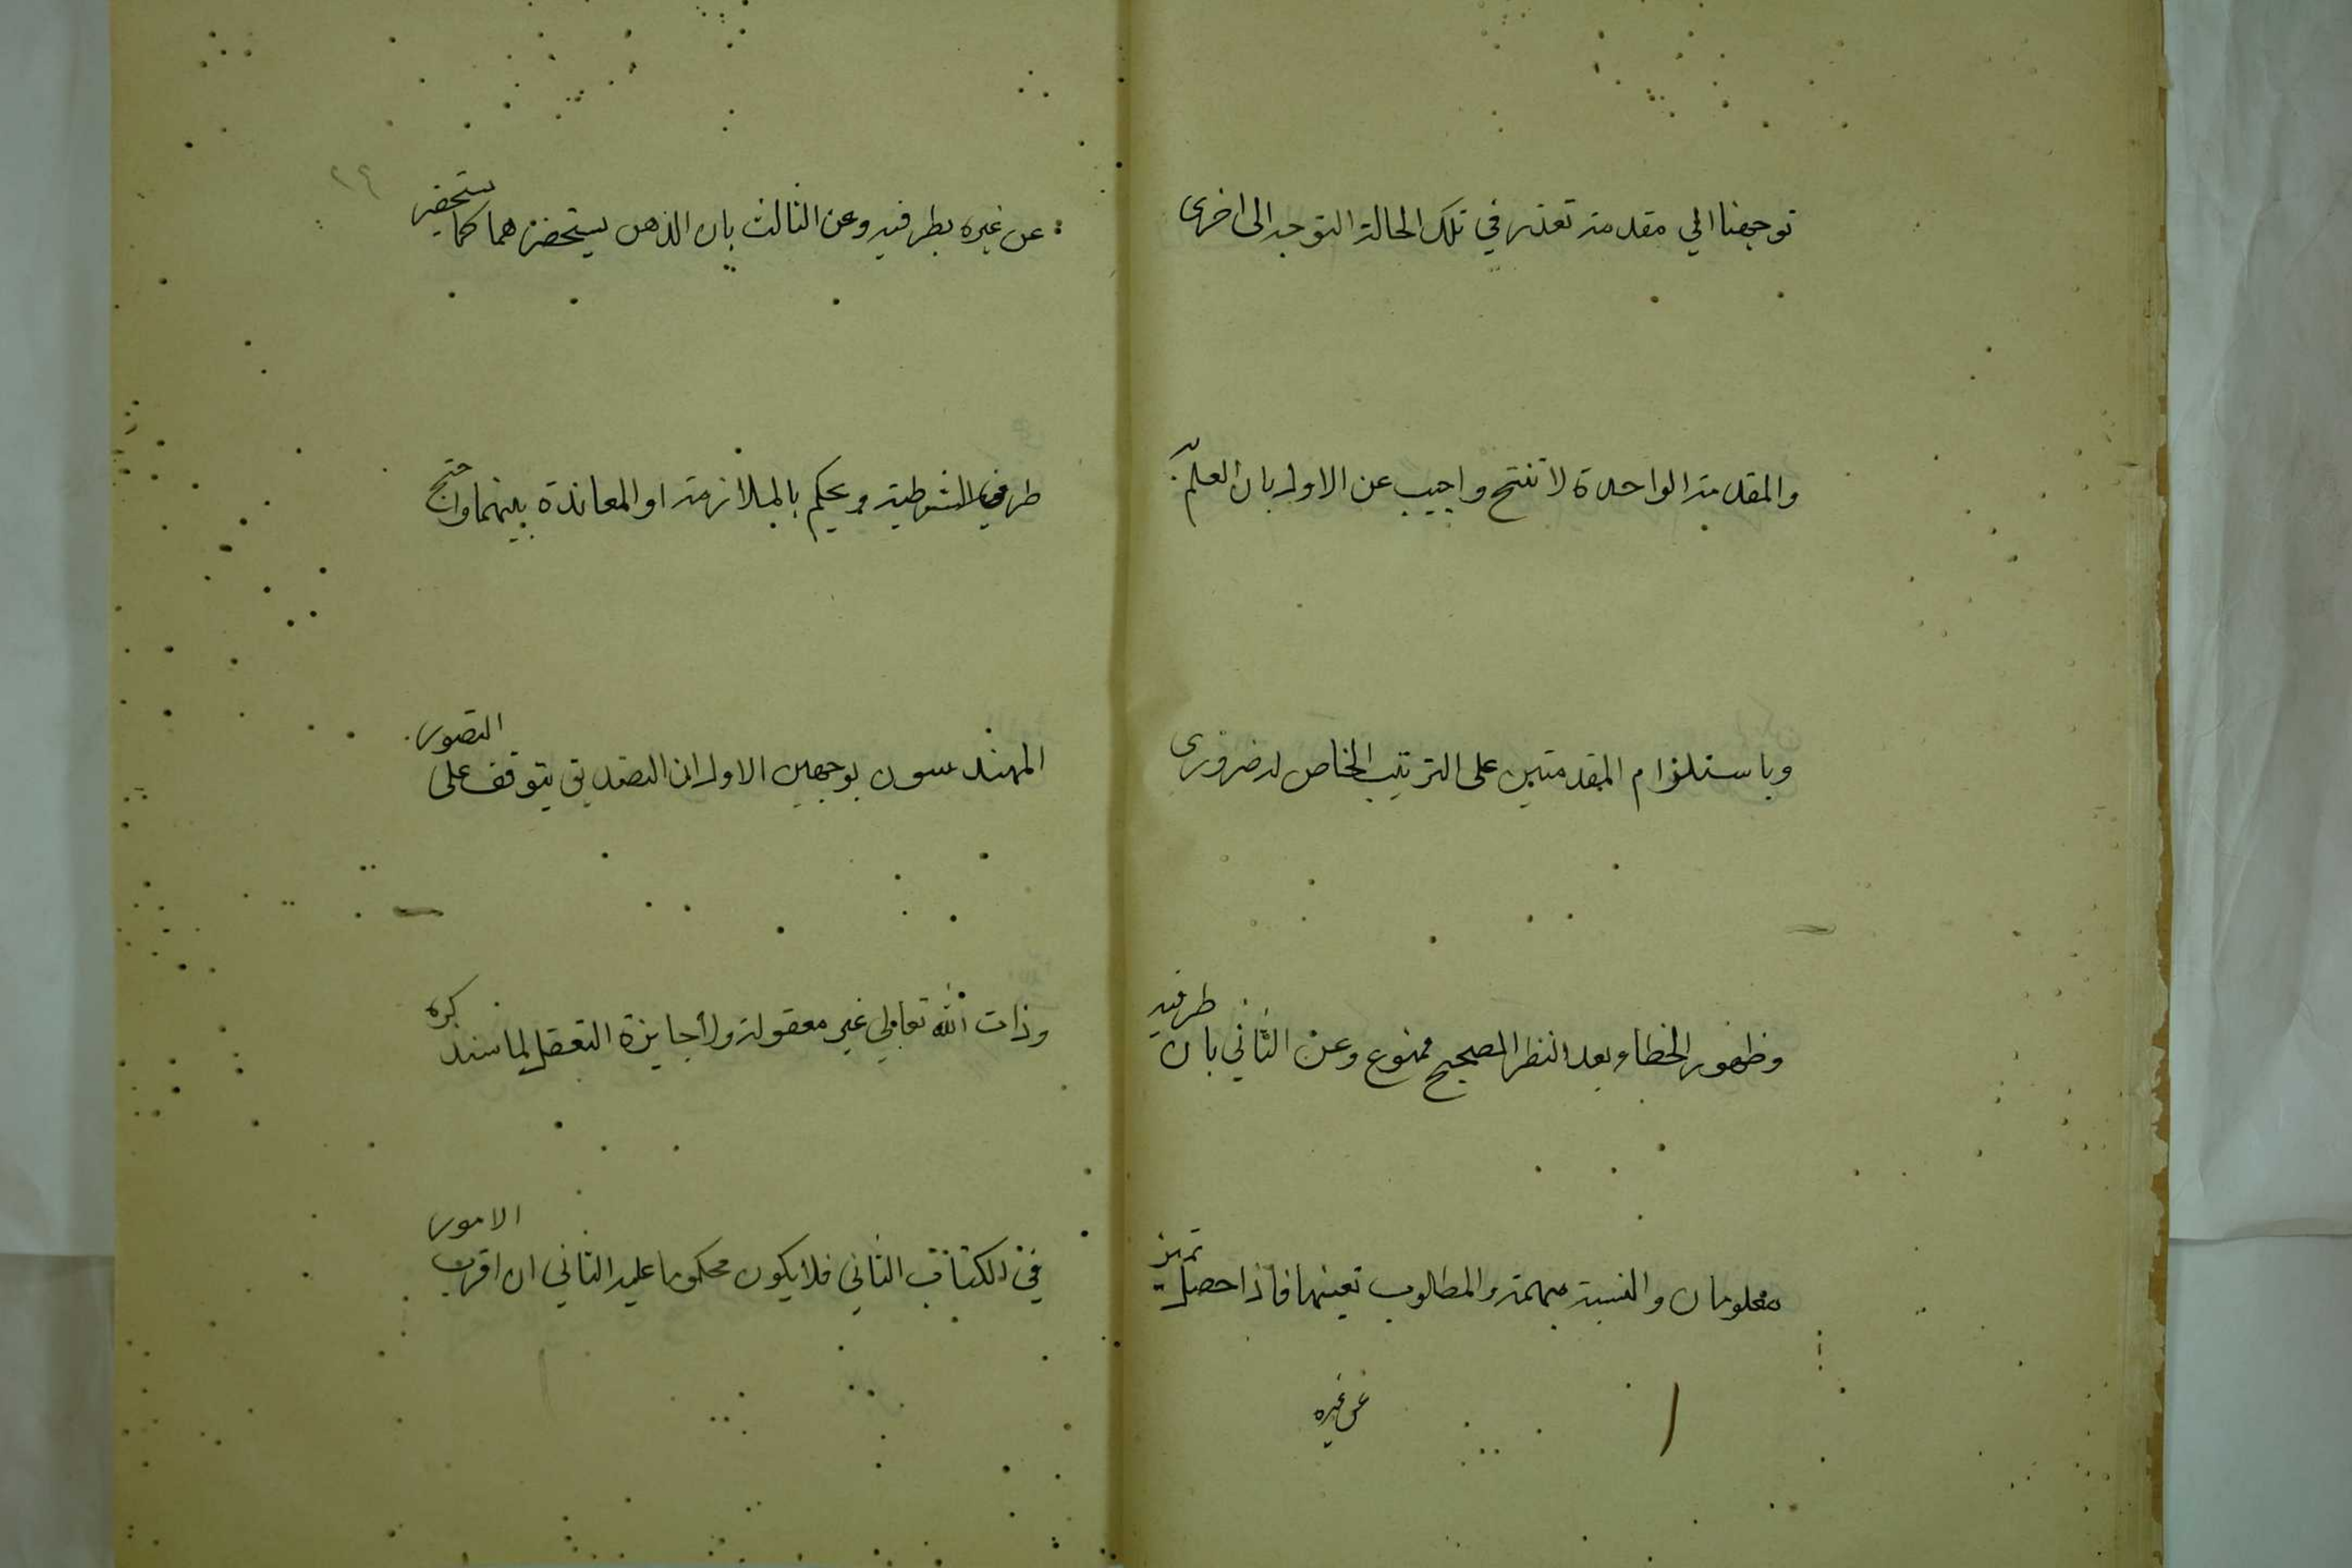 توجهنا الي مقدمة تعذر في تلك الحالة التوجه الى اخرى
والمقدمة الواحدة لا تنتج واجيب عن الاول بان العلم به
وباستلزام المقدمتين على الترتيب الخاص له ضرورى
وظهور الخطاء بعد النظر الصحيح ممنوع وعن الثاني بان طرفيه
معلومان والنسبة مبهمة والمطلوب تعينها فاذا حصل تميز
عن غيره
عن غيره بطرفيه وعن الثالث بان الذهن يستحضرهما كما يستحضر
طرفي الشرطية ويحكم بالملازمة او المعاندة بينهما واحتج
المهندسون بوجهين الاول ان التصديق يتوقف على التصور
وذات الله تعالي غير معقولة ولا جايزة التعقل لما سنذكره
في الكتاب الثاني فلا يكون محكوما عليه الثاني ان اقرب الامور